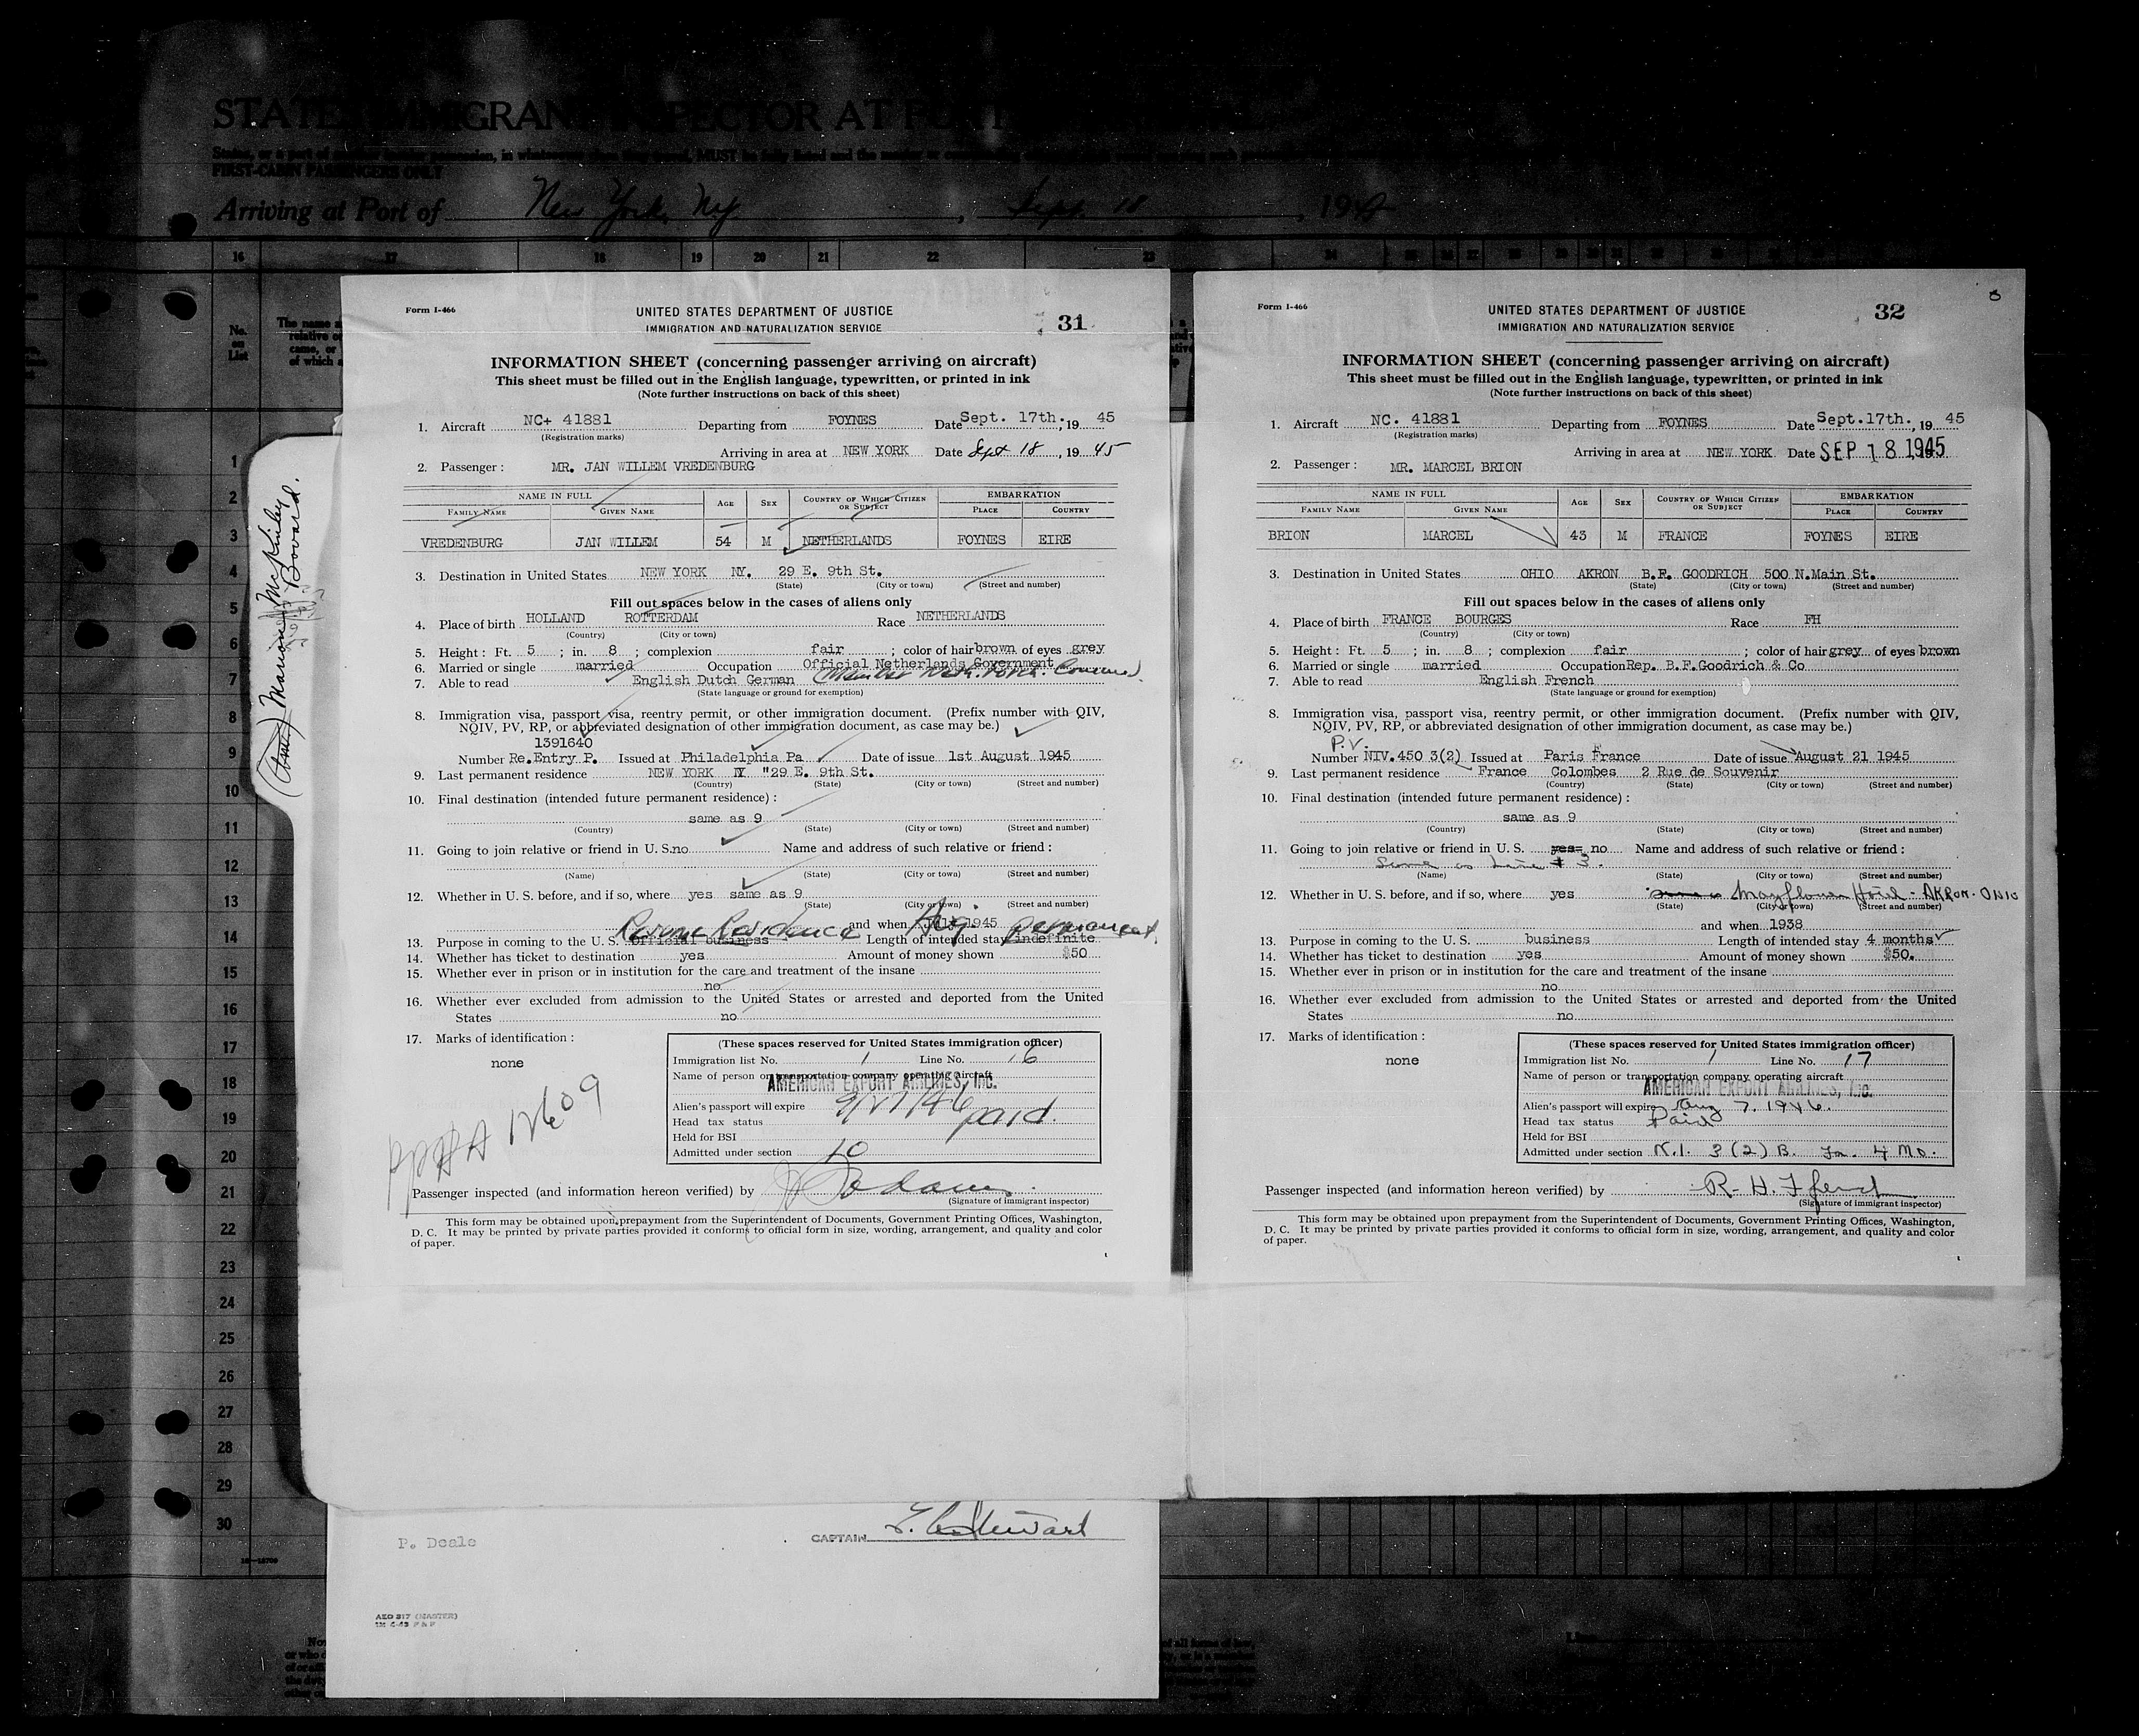 Arriving at Port of New York, Ny. , Sept. 18 , 19
FIRST-CABIN PASSENGERS ONLY
16 17 18 19 20 21 22 23
No.
on
List
1
2
3
4
5
6
7
8
9
10
11
12
13
14
15
16
17
18
19
20
21
22
23
24
25
26
27
28
29
30
Marion McKinley
Bovard.
Form I-466
UNITED STATES DEPARTMENT OF JUSTICE
IMMIGRATION AND NATURALIZATION SERVICE
31
INFORMATION SHEET (concerning passenger arriving on aircraft)
This sheet must be filled out in the English language, typewritten, or printed in ink
(Note further instructions on back of this sheet)
1. Aircraft NC+ 41881 Departing from FOYNES Date Sept. 17th. , 19 45
(Registration marks)
Arriving in area at NEW YORK Date Sept 18 , 19 45
2. Passenger : MR. JAN WILLEM VREDENBURG
NAME IN FULL AGE SEX COUNTRY OF WHICH CITIZEN OR SUBJECT EMBARKATION
FAMILY NAME GIVEN NAME PLACE COUNTRY
VREDENBURG JAN WILLEM 54 M NETHERLANDS FOYNES EIRE
3. Destination in United States NEW YORK NY. 29 E. 9th St.
(State) (City or town) (Street and number)
Fill out spaces below in the cases of aliens only
4. Place of birth HOLLAND ROTTERDAM Race NETHERLANDS
(Country) (City or town)
5. Height : Ft. 5 ; in. 8 ; complexion fair ; color of hair brown of eyes grey
6. Married or single married Occupation Official Netherlands Government
7. Able to read English Dutch German
(State language or ground for exemption)
8. Immigration visa, passport visa, reentry permit, or other immigration document. (Prefix number with QIV,
NQIV, PV, RP, or abbreviated designation of other immigration document, as case may be.)
1391640
Number Re.Entry P. Issued at Philadelphia Pa Date of issue 1st August 1945
9. Last permanent residence NEW YORK NY "29 E. 9th St.
(Country) (State) (City or town) (Street and number)
10. Final destination (intended future permanent residence) :
same as 9
(Country) (State) (City or town) (Street and number)
11. Going to join relative or friend in U. S. no Name and address of such relative or friend :
(Name) (State) (City or town) (Street and number)
12. Whether in U. S. before, and if so, where yes same as 9
(State) (City or town) (Street and number)
and when Aug. 1945
13. Purpose in coming to the U. S. Official business Resume Residence Length of intended stay indefinite permanent.
14. Whether has ticket to destination yes Amount of money shown $50
15. Whether ever in prison or in institution for the care and treatment of the insane
no
16. Whether ever excluded from admission to the United States or arrested and deported from the United
States no
17. Marks of identification :
none
(These spaces reserved for United States immigration officer)
Immigration list No. 1 Line No. 16
Name of person or transportation company operating aircraft
AMERICAN EXPORT AIRLINES, INC.
Alien's passport will expire
Head tax status paid.
Held for BSI
Admitted under section 10
Passenger inspected (and information hereon verified) by
(Signature of immigrant inspector)
This form may be obtained upon prepayment from the Superintendent of Documents, Government Printing Offices, Washington,
D. C. It may be printed by private parties provided it conforms to official form in size, wording, arrangement, and quality and color
of paper.
Form I-466
UNITED STATES DEPARTMENT OF JUSTICE
IMMIGRATION AND NATURALIZATION SERVICE
32
INFORMATION SHEET (concerning passenger arriving on aircraft)
This sheet must be filled out in the English language, typewritten, or printed in ink
(Note further instructions on back of this sheet)
1. Aircraft NC. 41881 Departing from FOYNES Date Sept.17th. , 19 45
(Registration marks)
Arriving in area at NEW YORK Date SEP 18 1945
2. Passenger : MR. MARCEL BRION
NAME IN FULL AGE SEX COUNTRY OF WHICH CITIZEN OR SUBJECT EMBARKATION
FAMILY NAME GIVEN NAME PLACE COUNTRY
BRION MARCEL 43 M FRANCE FOYNES EIRE
3. Destination in United States OHIO AKRON B.F. GOODRICH 500 N.Main St.
(State) (City or town) (Street and number)
Fill out spaces below in the cases of aliens only
4. Place of birth FRANCE BOURGES Race FH
(Country) (City or town)
5. Height : Ft. 5 ; in. 8 ; complexion fair ; color of hair grey of eyes brown
6. Married or single married Occupation Rep. B.F.Goodrich & Co
7. Able to read English French
(State language or ground for exemption)
8. Immigration visa, passport visa, reentry permit, or other immigration document. (Prefix number with QIV,
NQIV, PV, RP, or abbreviated designation of other immigration document, as case may be.)
P.V.
Number NIV.450 3(2) Issued at Paris France Date of issue August 21 1945
9. Last permanent residence France Colombes 2 Rue de Souvenir
(Country) (State) (City or town) (Street and number)
10. Final destination (intended future permanent residence) :
same as 9
(Country) (State) (City or town) (Street and number)
11. Going to join relative or friend in U. S. yes= no Name and address of such relative or friend :
Same as Line # 3.
(Name) (State) (City or town) (Street and number)
12. Whether in U. S. before, and if so, where yes Mayflower Hotel - AKRON - OHIO
(State) (City or town) (Street and number)
and when 1938
13. Purpose in coming to the U. S. business Length of intended stay 4 months
14. Whether has ticket to destination yes Amount of money shown $50.
15. Whether ever in prison or in institution for the care and treatment of the insane
no
16. Whether ever excluded from admission to the United States or arrested and deported from the United
States no
17. Marks of identification :
none
(These spaces reserved for United States immigration officer)
Immigration list No. 1 Line No. 17
Name of person or transportation company operating aircraft
AMERICAN EXPORT AIRLINES, INC.
Alien's passport will expire Aug 7. 1946.
Head tax status Paid
Held for BSI
Admitted under section N.I. 3 (2) B. For 4 Mo.
Passenger inspected (and information hereon verified) by R. H.
(Signature of immigrant inspector)
This form may be obtained upon prepayment from the Superintendent of Documents, Government Printing Offices, Washington,
D. C. It may be printed by private parties provided it conforms to official form in size, wording, arrangement, and quality and color
of paper.
P. Deale
CAPTAIN
AEO 317 (MASTER)